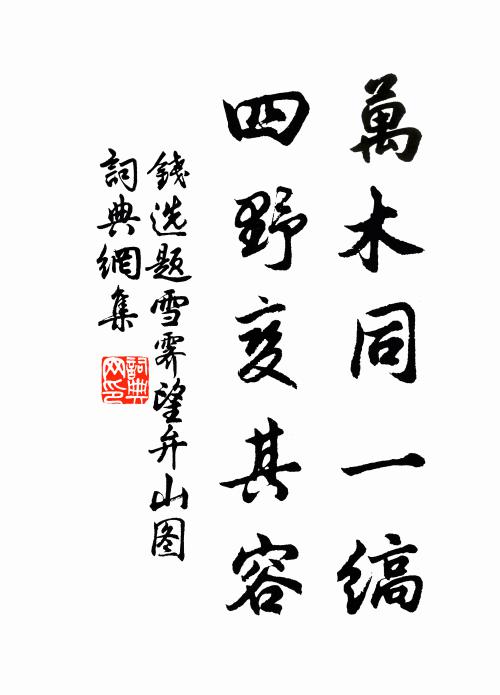 萬木同一縞
四野变其容
錢选题雪霁望弁山图
詞典網集
詞典网印